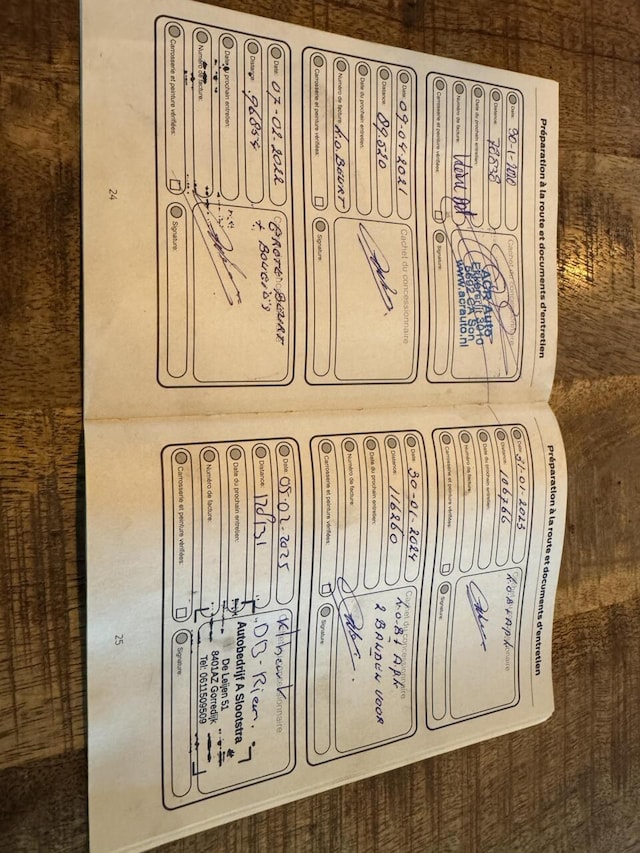 Préparation à la route et documents d'entretien
Date:
Distance: 78538
Date du prochain entretien:
Numéro de facture:
Carrosserie et peinture vérifiées:
ACR Auto
Ekkersrijt 3010
5692 CA Son
www.acrauto.nl
Signature:
Date: 09-04-2021
Distance: 89.520
Date du prochain entretien:
Numéro de facture: k.o BEURT
Carrosserie et peinture vérifiées:
Cachet du concessionnaire
Signature:
Date: 07-02-2022
Distance: 96854
Date du prochain entretien:
Numéro de facture:
Carrosserie et peinture vérifiées:
GROTE BEURT
+ BOUGIE'S
Signature:
24
Préparation à la route et documents d'entretien
Date: 31-01-2023
Distance: 106766
Date du prochain entretien:
Numéro de facture:
Carrosserie et peinture vérifiées:
Signature:
Date: 30-01-2024
Distance: 116260
Date du prochain entretien:
Numéro de facture:
Carrosserie et peinture vérifiées:
Cachet du concessionnaire
K.O.B + APK
2 BANDEN VOOR
Signature:
Date: 05-02-2025
Distance:
Date du prochain entretien:
Numéro de facture:
Carrosserie et peinture vérifiées:
DB-Riem.
Autobedrijf A Slootstra
De Leijen 51
8401AZ Gorredijk
Tel: 0611509509
Signature:
25